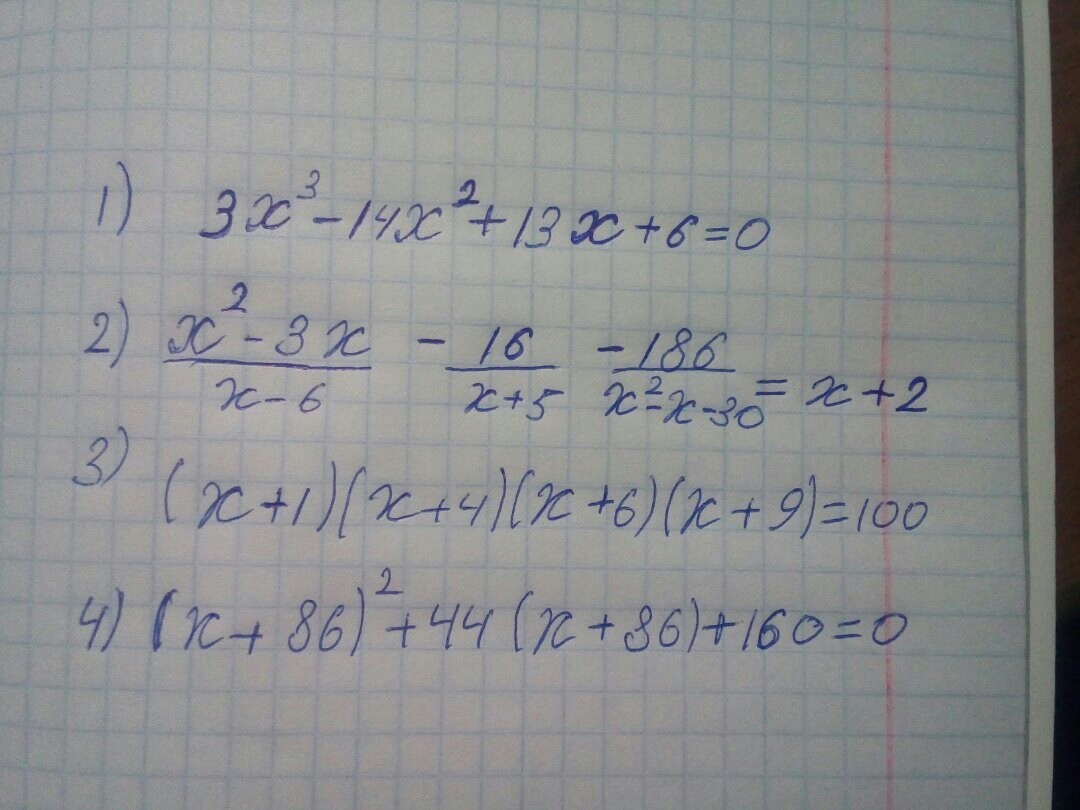 1) 3x³-14x²+13x+6=0
2) \frac{x²-3x}{x-6} - \frac{16}{x+5} - \frac{186}{x²-x-30} = x+2
3) (x+1)(x+4)(x+6)(x+9)=100
4) (x+86)²+44(x+86)+160=0